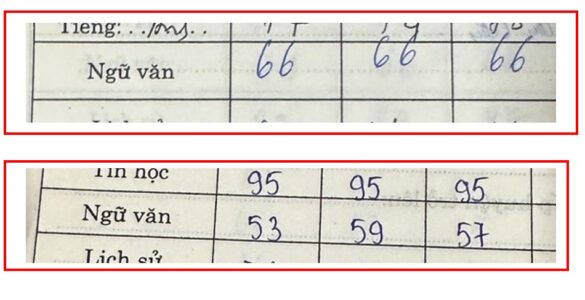 Tiếng:
Ngữ văn 66 66 66
Tin học 95 95 95
Ngữ văn 53 59 57
Lịch sử